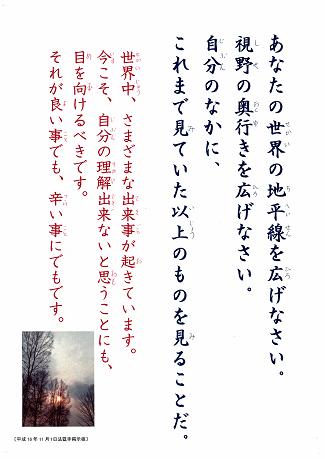 あなたの世界の地平線を広げなさい。
視野の奥行きを広げなさい。
自分のなかに、
これまで見ていた以上のものを見ることだ。
世界中、さまざまな出来事が起きています。
今こそ、自分の理解出来ないと思うことにも、
目を向けるべきです。
それが良い事でも、辛い事にでもです。